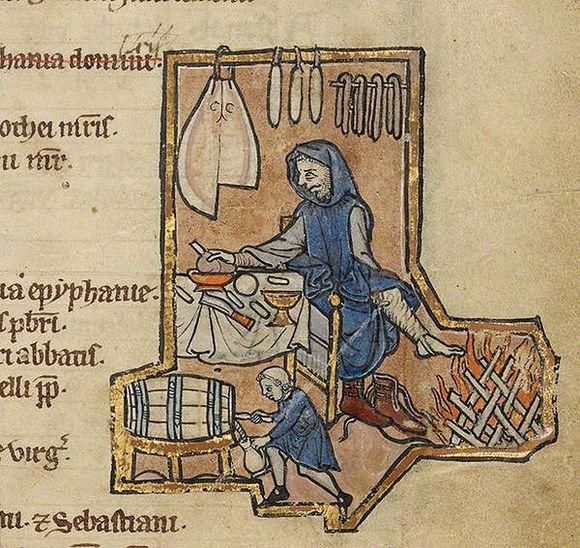 hania domini.
othei mr̄is.
u mr̄.
ua epyphanie.
s pbr̄i.
ci abbatis.
elli pp̄.
e virg᷑.
ni. ⁊ Sebastiani.